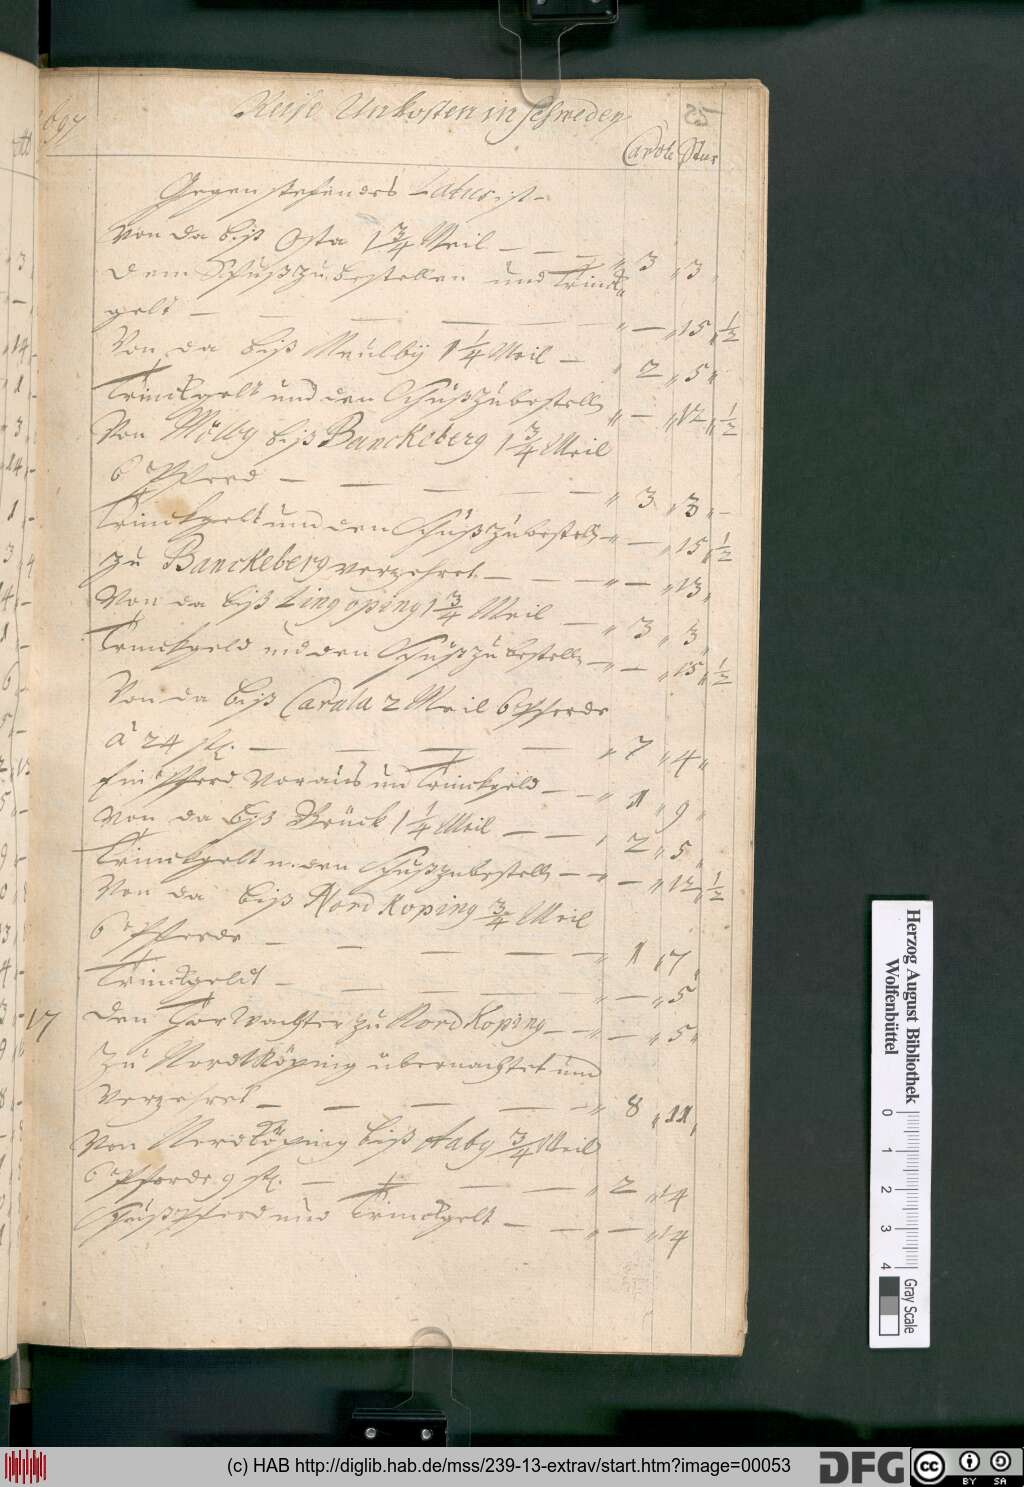 1697
Reise Unkosten in Schweden
Carol: Stur
Gegenstehendes Latus ist —
Von da biß Osta 1 3/4 Meil — — — " 3 " 3 "
Dem Schußzubestellen und Trinck
gelt — — — — — " — " 15 " 1/2
Von da biß Meulby 1 1/4 Meil — " 2 " 5 "
Trinckgelt und den Schußzubestelln " — " 12 " 1/2
Von Mölby biß Banckeberg 1 3/4 Meil
6 Pferd — — — — " 3 " 3 " —
Trinckgelt und den Schußzubestelln — " — " 15 " 1/2
zu Banckeberg verzehret — — — " — " 13 "
Von da biß Lingöping 1 3/4 Meil — " 3 " 3 "
Trinckgeld und den Schußzubestelln — " — " 15 " 1/2
Von da biß Carala 2 Meil 6 Pferde
à 24 st. — — — — " 7 " 4 "
Ein Pferd voraus und Trinckgeld — — " 1 " 9 "
Von da biß Brück 1 1/4 Meil — — " 2 " 5 "
Trinckgelt u. den Schußzubestelln — " — " 12 " 1/2
Von da biß Nordkoping 3/4 Meil
6 Pferde — — — — " 1 " 7 "
Trinckgeldt — — — — " — " 5
17 Den Thorwachter zu Nordkoping — — " — " 5 "
Zu Nordköping übernachtet und
verzehret — — — — " 8 " 11 "
Von Nordköping biß Aaby 3/4 Meil
6 Pferde 9 st. — — — — " 2 " 14
Schußpferd und Trinckgelt — — " — " 14
Herzog August Bibliothek
Wolfenbüttel
0 1 2 3 4
Gray Scale
(c) HAB http://diglib.hab.de/mss/239-13-extrav/start.htm?image=00053
DFG
cc BY SA